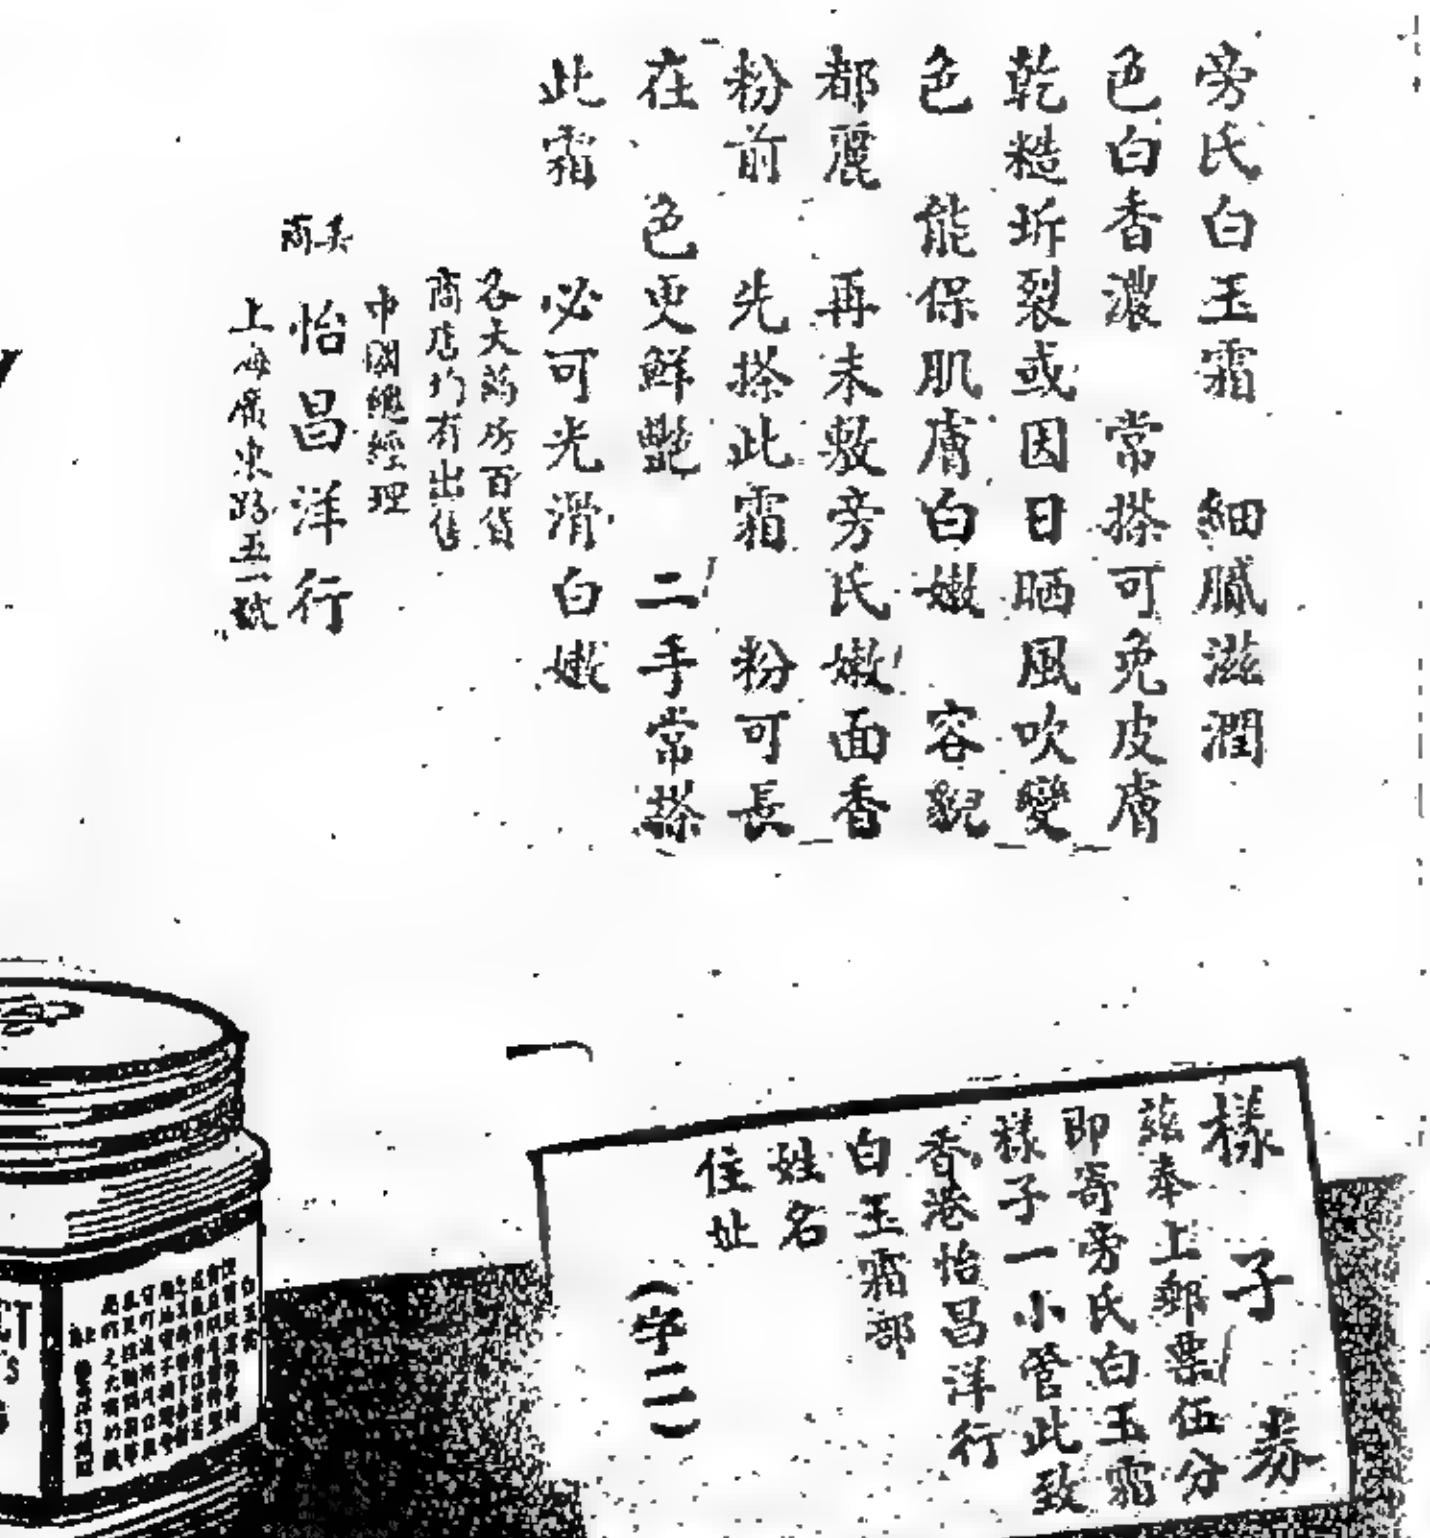 旁氏白玉霜 細膩滋潤
色白香濃 常搽可免皮膚
乾糙坼裂或因日晒風吹變
色 能保肌膚白嫩 容貌
都麗 再未敷旁氏嫩面香
粉前 先搽此霜 粉可長
在 色更鮮艷 二手常搽
此霜 必可光滑白嫩
各大葯房百貨
商店均有出售
中國總經理
美商
怡昌洋行
上海廣東路五一號
樣子券
茲奉上郵票伍分
即寄旁氏白玉霜
樣子一小管此致
香港怡昌洋行
白玉霜部
姓名
住址
(字二)
白玉霜
CT
S